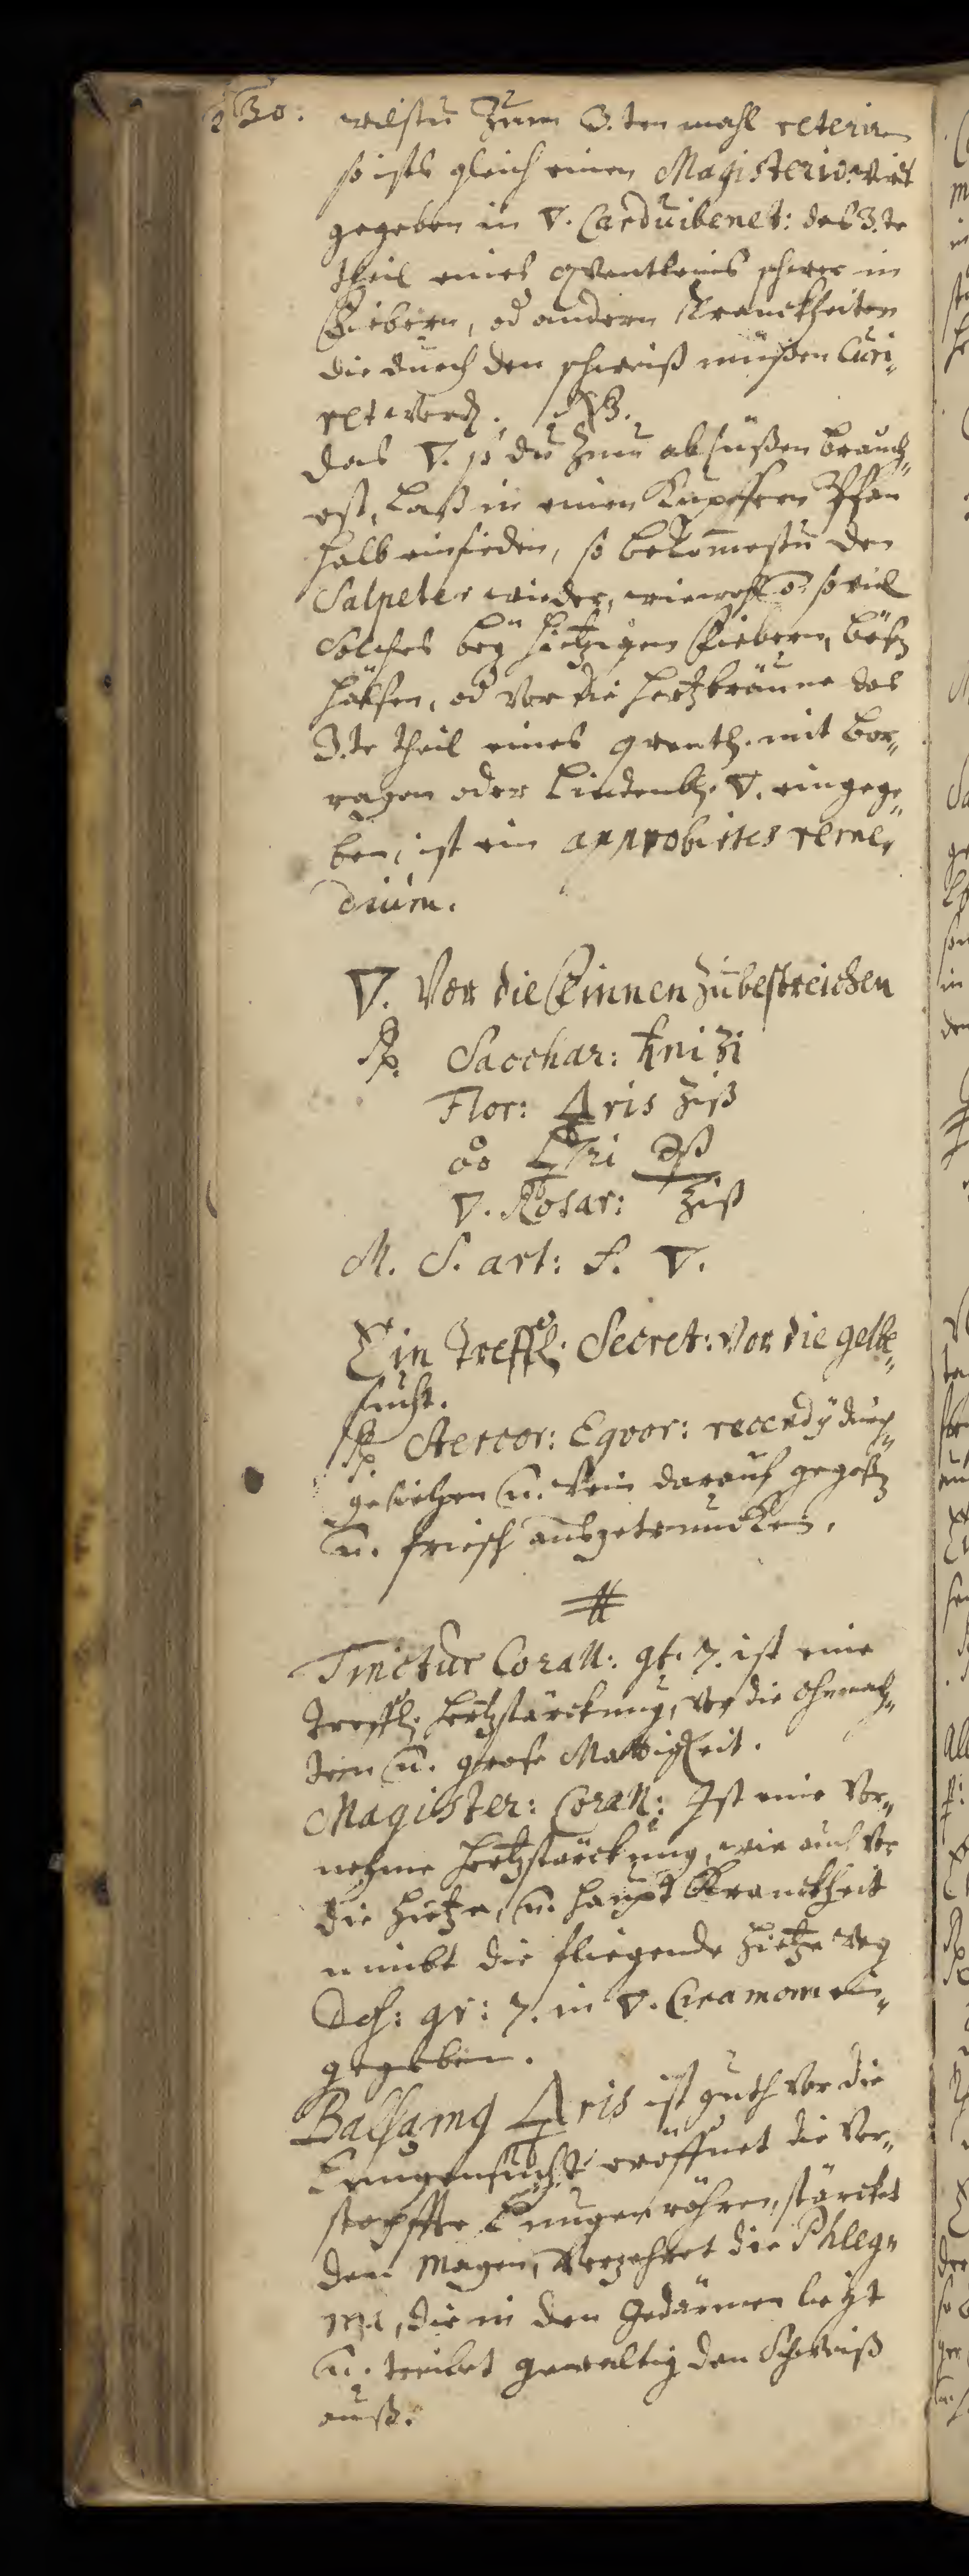 230. wilstu Zum 3.ten mahl reterirn
so ists gleich einen Magisterio. wirt
gegeben in 🜄. Carduibenet: das 3.te
theil eines qventleins schwer in
Fiebern, od andern Kranckheiten
die durch den schweiß müßen Curi-
ret werd. NB.
das 🜄. so du Zum absüßen brauch-
est, Laß in einen Kupffern Pfan
halb einsieden, so bekom̄estu den
Salpeter wieder, wiewohl so viel
Solches bey hitzigen Fiebern, bösen
hälsen, od vor die hertzbräune das
3.te theil eines qventl. mit Bor-
ragen oder Lindenbl. 🜄. eingege-
ben, ist ein approbirtes reme-
dium.
🜄. Vor die Finnen Zubestreichen
℞. Sacchar: ♄ni ʒi
Flor: 🜍ris ʒiß
🝆 🜿ri ʒß
🜄. Rosar: ℥iß
M. S. art: f. 🜄.
Ein Treffl: Secret: Vor die gelbe
sucht.
℞. Stercor: Eqvor: recendÿ durch
gesiehen u. Wein darauf gegoßen
u. frisch ausgetruncken.
#
Tinctur Corall: gt. 7. ist eine
treffl. hertzstärckung, vor die ohnmach-
ten u. große Mattigkeit.
Magister: Corall: Ist eine Vor-
nehme hertzstärckung, wie auch vor
die hietze, u. haupt Kranckheit
nimbt die fliegende hietze weg
Dos: gr: 7. in 🜄. Cinamomi ein-
gegeben.
Balsamg 🜍ris ist guth vor die
Lungensucht eröffnet die Ver-
stopffte Lungenröhren, stärcket
den Magen, verzehret die Phleg-
ma, die in den Gedärmen liegt
u. treibet gewaltig den Schweiß
auß.